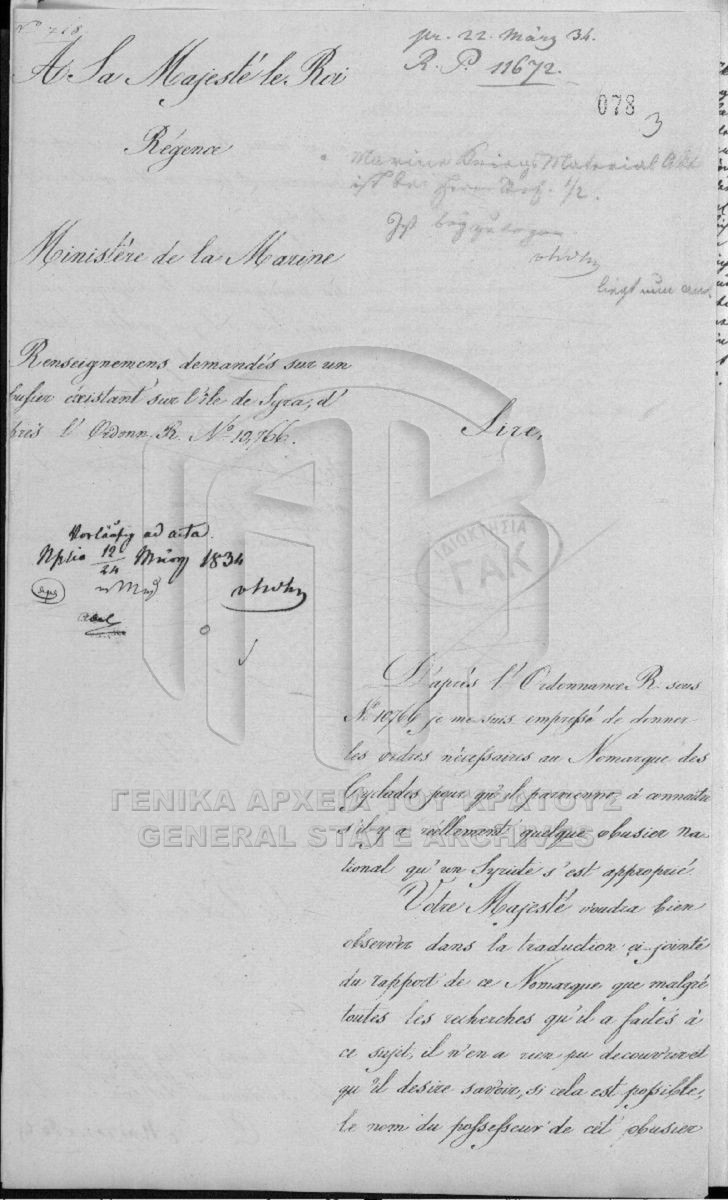 No 718
pr. 22. März 34.
R. P. 11672.
078
3
A Sa Majesté le Roi
Régence
Marine Kriegs Material Akt
ist bei Herrn 1/2.
Ist beizulegen
liegt nun an.
Ministère de la Marine
Renseignemens demandés sur un
busier éxistant sur l'île de Syra, d'
près l' Ordonn. R. No 10,766.
Sire,
Vorläufig ad acta.
Nplia 12/24 März 1834
ΙΔΙΟΚΤΗΣΙΑ
ΓΑΚ
D'après l' Ordonnance R. sous
No 10766 je me suis empressé de donner
les ordres nécessaires au Nomarque des
Cyclades pour qu'il parvienne à connaitre
s'il y a réellement quelque obusier na-
tional qu'un Syriote s'est approprié.
ΓΕΝΙΚΑ ΑΡΧΕΙΑ ΤΟΥ ΚΡΑΤΟΥΣ
GENERAL STATE ARCHIVES
Votre Majesté voudra bien
observer dans la traduction ci-jointe
du rapport de ce Nomarque que malgré
toutes les recherches qu'il a faites à
ce sujet, il n'en a rien pu decouvrir et
qu'il desire savoir, si cela est possible,
le nom du possesseur de cèt obusier